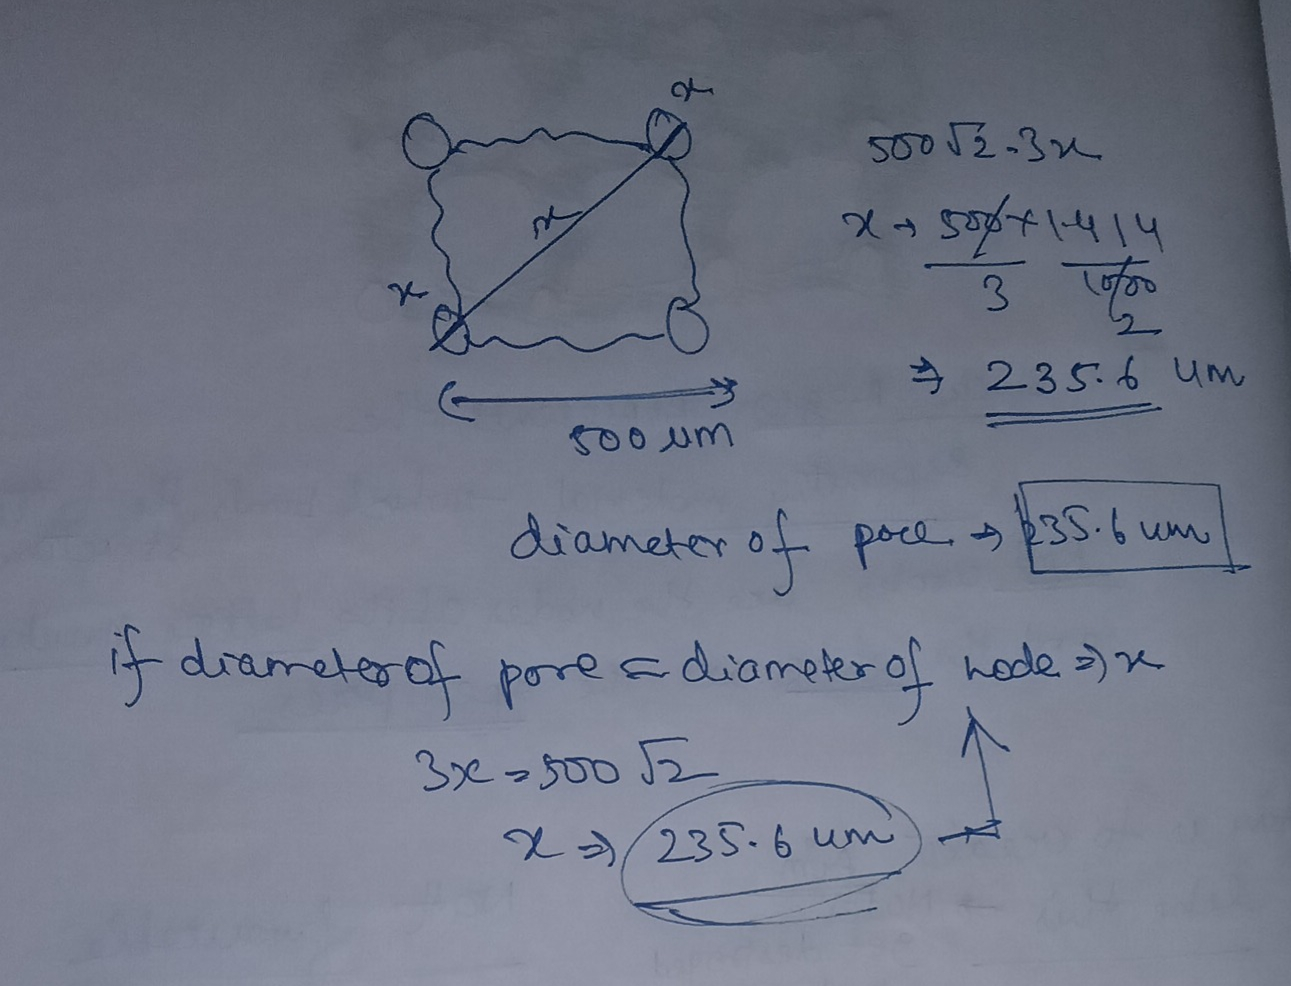 x
500√2 = 3x
x
x → 500 × 1.414
3 1000
2
x
⇒ 235.6 um
500 um
diameter of pore → 235.6 um
if diameter of pore = diameter of node ⇒ x
3x = 500 √2
x ⇒ 235.6 um